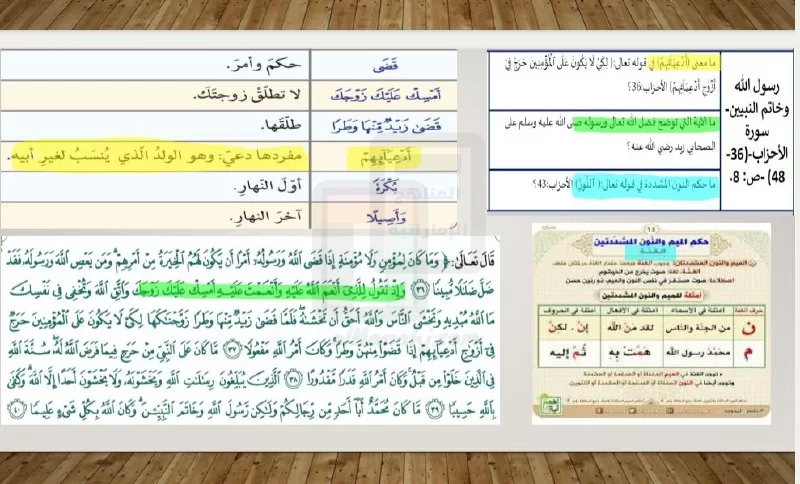 رسول الله
وخاتم النبيين-
سورة
الأحزاب-(36-
48) -ص: 8.
ما معنى (أَدْعِيَائِهِمْ) في قوله تعالى:( لِكَيْ لَا يَكُونَ عَلَى الْمُؤْمِنِينَ حَرَجٌ فِي
أَزْوَاجِ أَدْعِيَائِهِمْ) الأحزاب:36؟
ما الآية التي توضح فضل الله تعالى ورسوله صلى الله عليه وسلم على
الصحابي زيد رضي الله عنه ؟
ما حكم النون المشددة في قوله تعالى:( النُّورِ) الأحزاب:43؟
قَضَى حكمَ وأمرَ.
أَمْسِكْ عَلَيْكَ زَوْجَكَ لا تطلّقْ زوجتَكَ.
قَضَىٰ زَيْدٌ مِّنْهَا وَطَرًا طلّقَها.
أَدْعِيَائِهِمْ مفردها دعيّ: وهو الولدُ الّذي يُنسَبُ لغيرِ أبيه.
بُكْرَةً أوّلَ النّهارِ.
وَأَصِيلًا آخرَ النهارِ.
قَالَ تَعَالَى: ﴿ وَمَا كَانَ لِمُؤْمِنٍ وَلَا مُؤْمِنَةٍ إِذَا قَضَى اللَّهُ وَرَسُولُهُ أَمْرًا أَن يَكُونَ لَهُمُ الْخِيَرَةُ مِنْ أَمْرِهِمْ وَمَن يَعْصِ اللَّهَ وَرَسُولَهُ فَقَدْ
ضَلَّ ضَلَالًا مُّبِينًا ٣٦ وَإِذْ تَقُولُ لِلَّذِي أَنْعَمَ اللَّهُ عَلَيْهِ وَأَنْعَمْتَ عَلَيْهِ أَمْسِكْ عَلَيْكَ زَوْجَكَ وَاتَّقِ اللَّهَ وَتُخْفِي فِي نَفْسِكَ
مَا اللَّهُ مُبْدِيهِ وَتَخْشَى النَّاسَ وَاللَّهُ أَحَقُّ أَن تَخْشَاهُ فَلَمَّا قَضَىٰ زَيْدٌ مِّنْهَا وَطَرًا زَوَّجْنَاكَهَا لِكَيْ لَا يَكُونَ عَلَى الْمُؤْمِنِينَ حَرَجٌ
فِي أَزْوَاجِ أَدْعِيَائِهِمْ إِذَا قَضَوْا مِنْهُنَّ وَطَرًا وَكَانَ أَمْرُ اللَّهِ مَفْعُولًا ٣٧ مَّا كَانَ عَلَى النَّبِيِّ مِنْ حَرَجٍ فِيمَا فَرَضَ اللَّهُ لَهُ سُنَّةَ اللَّهِ
فِي الَّذِينَ خَلَوْا مِن قَبْلُ وَكَانَ أَمْرُ اللَّهِ قَدَرًا مَّقْدُورًا ٣٨ الَّذِينَ يُبَلِّغُونَ رِسَالَاتِ اللَّهِ وَيَخْشَوْنَهُ وَلَا يَخْشَوْنَ أَحَدًا إِلَّا اللَّهَ وَكَفَىٰ
بِاللَّهِ حَسِيبًا ٣٩ مَّا كَانَ مُحَمَّدٌ أَبَا أَحَدٍ مِّن رِّجَالِكُمْ وَلَٰكِن رَّسُولَ اللَّهِ وَخَاتَمَ النَّبِيِّينَ وَكَانَ اللَّهُ بِكُلِّ شَيْءٍ عَلِيمًا ٤٠
حكم الميم والنون المشددتين
الغنة
الغنة لغة: صوت يخرج من الخيشوم
أمثلة للميم والنون المشددتين
حرف الغنة أمثلة في الأسماء أمثلة في الأفعال أمثلة في الحروف
ن من الجنة والناس لقد منّ الله إنّ . لكنّ
م محمّد رسول الله همّت به ثمّ إليه
المناهج
الإماراتية